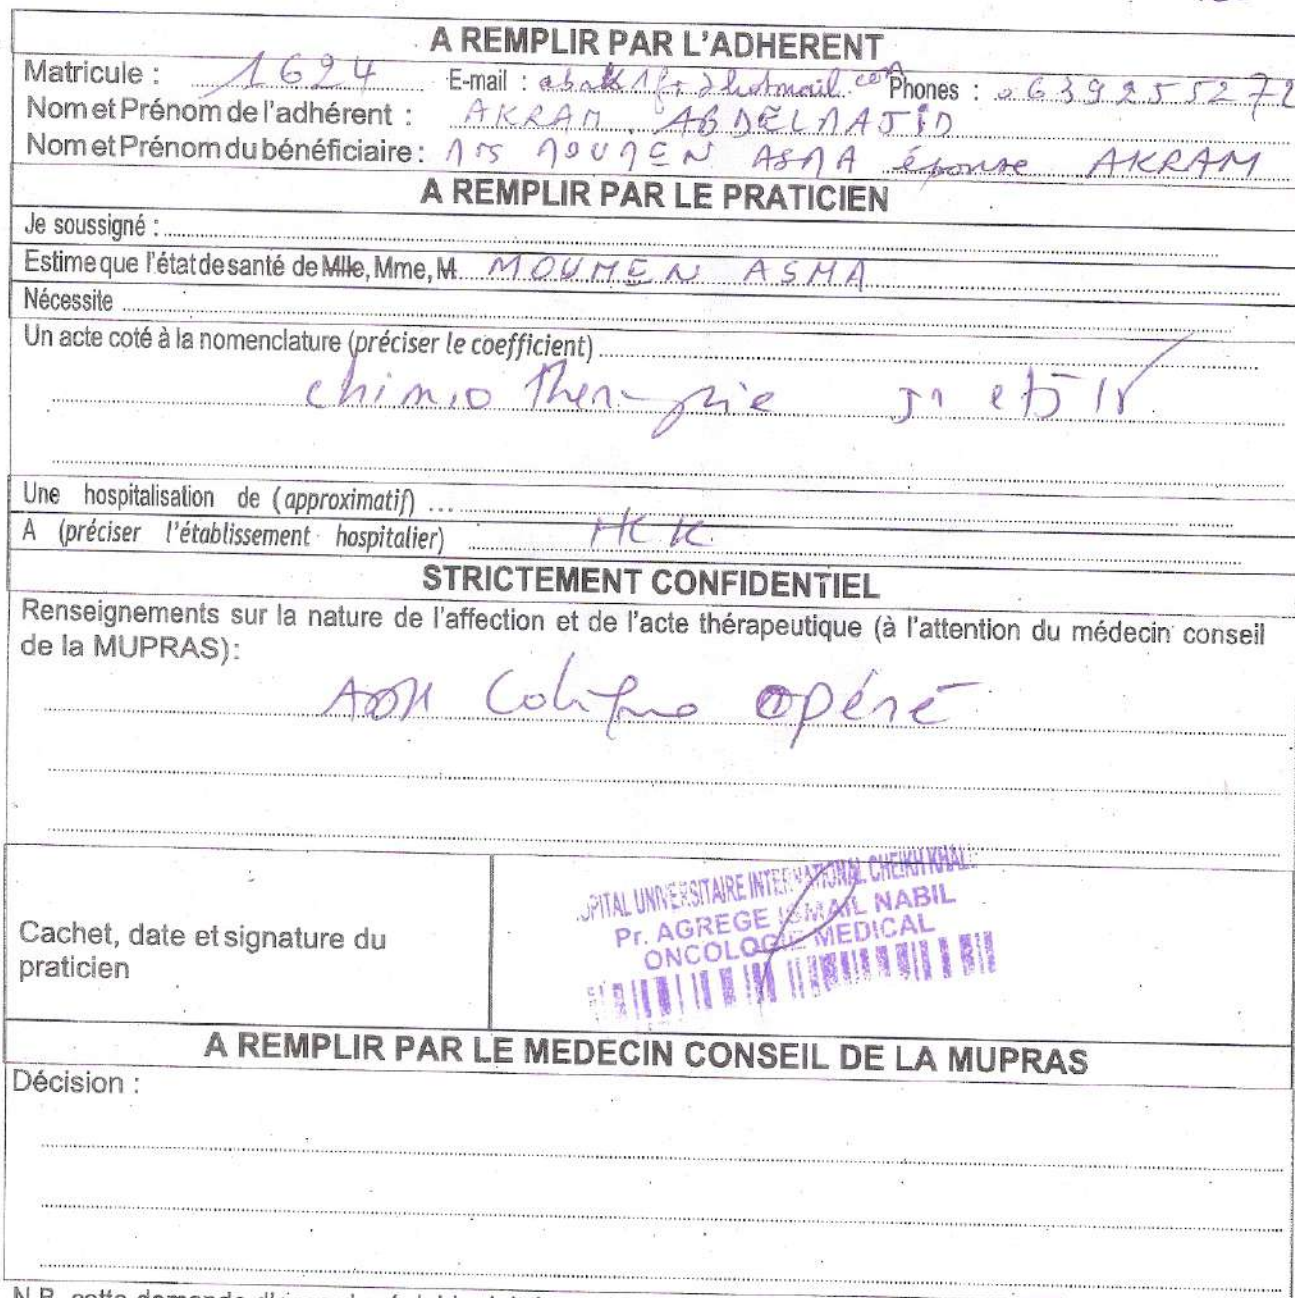 A REMPLIR PAR L'ADHERENT
Matricule : 1624 E-mail : Phones : 0639255272
Nom et Prénom de l'adhérent : AKRAM ABDELMAJID
Nom et Prénom du bénéficiaire : MOUMEN ASMA épouse AKRAM
A REMPLIR PAR LE PRATICIEN
Je soussigné :
Estime que l'état de santé de Mlle, Mme, M. MOUMEN ASMA
Nécessite
Un acte coté à la nomenclature (préciser le coefficient)
chimiothérapie
Une hospitalisation de (approximatif) ...
A (préciser l'établissement hospitalier) HCK
STRICTEMENT CONFIDENTIEL
Renseignements sur la nature de l'affection et de l'acte thérapeutique (à l'attention du médecin conseil
de la MUPRAS):
opéré
OPITAL UNIVERSITAIRE INTERNATIONAL CHEIKH KHAL
Pr. AGREGE ISMAIL NABIL
ONCOLOGIE MEDICAL
Cachet, date et signature du
praticien
A REMPLIR PAR LE MEDECIN CONSEIL DE LA MUPRAS
Décision :